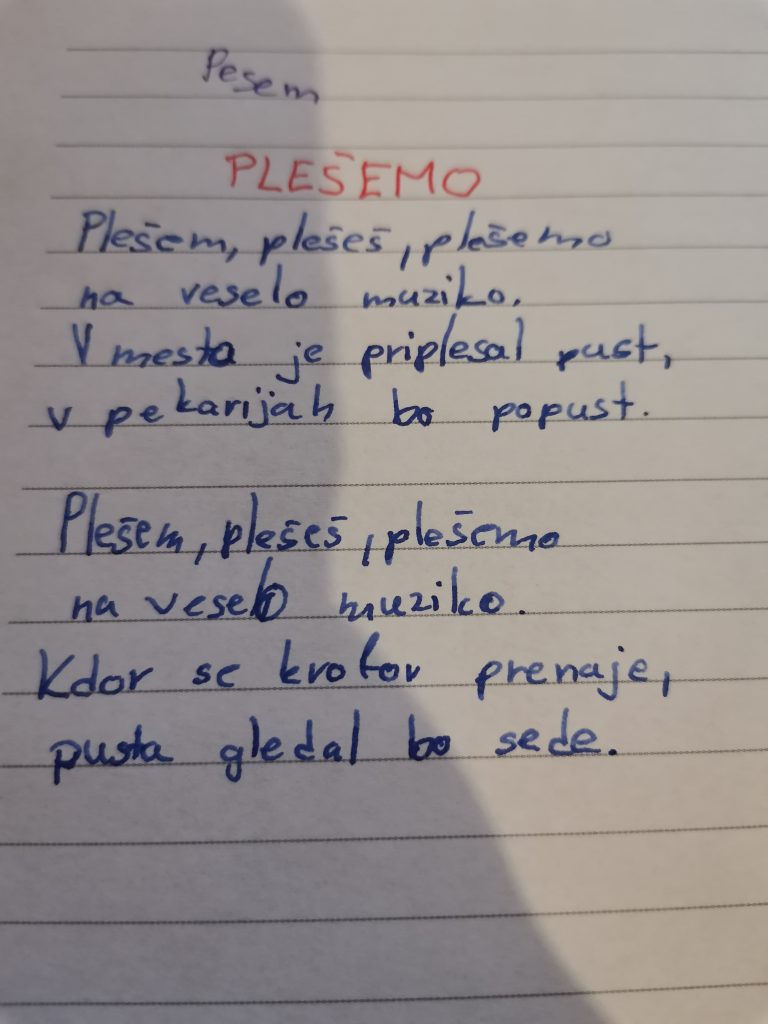 Pesem
PLEŠEMO
Plešem, plešeš, plešemo
na veselo muziko.
V mesta je priplesal pust,
v pekarijah bo popust.
Plešem, plešeš, plešemo
na veselo muziko.
Kdor se krofov prenaje,
pusta gledal bo sede.